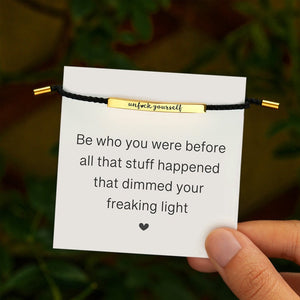 unf*ck yourself
Be who you were before
all that stuff happened
that dimmed your
freaking light